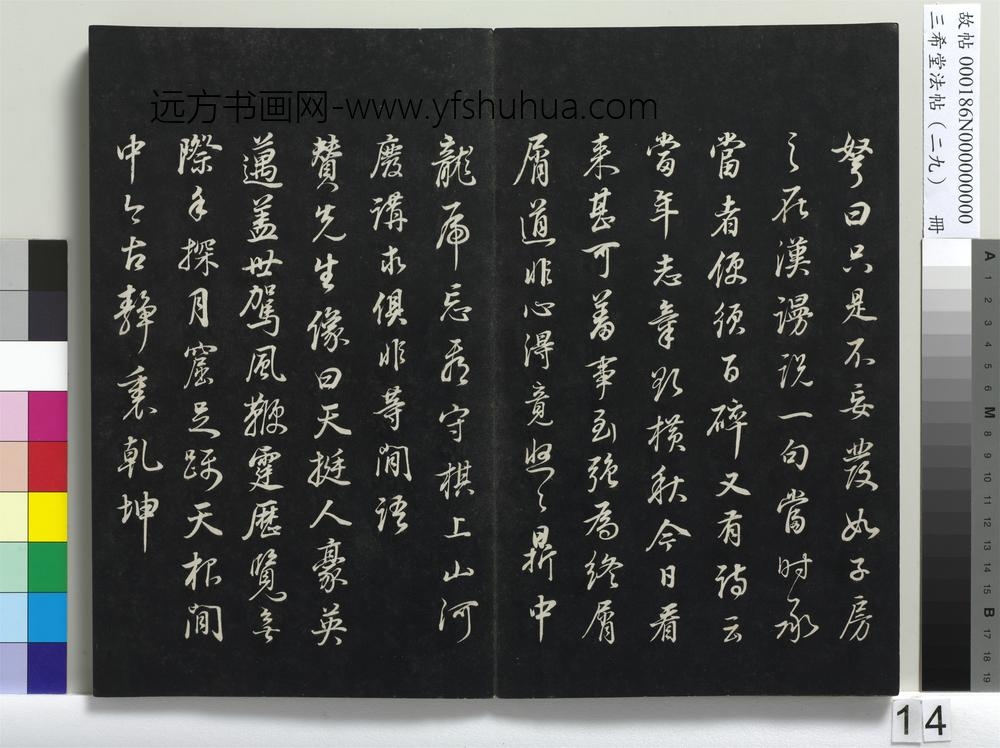 弩曰只是不妄發如子房
之在漢謾說一句當時承
當者便須百碎又有詩云
當年志氣欲橫秋今日看
来甚可羞事到強為終屑
屑道非心得竟悠〻鼎中
龍虎忘看守棋上山河
廢講求俱非等閒語
贊先生像曰天挺人豪英
邁盖世駕風鞭霆歷覽無
際手探月窟足踏天根閒
中今古靜裏乾坤
远方书画网-www.yfshuhua.com
故帖 000186N000000000
三希堂法帖（二九） 冊
A 1 2 3 4 5 6 M 8 9 10 11 12 13 14 15 B 17 18 19
14